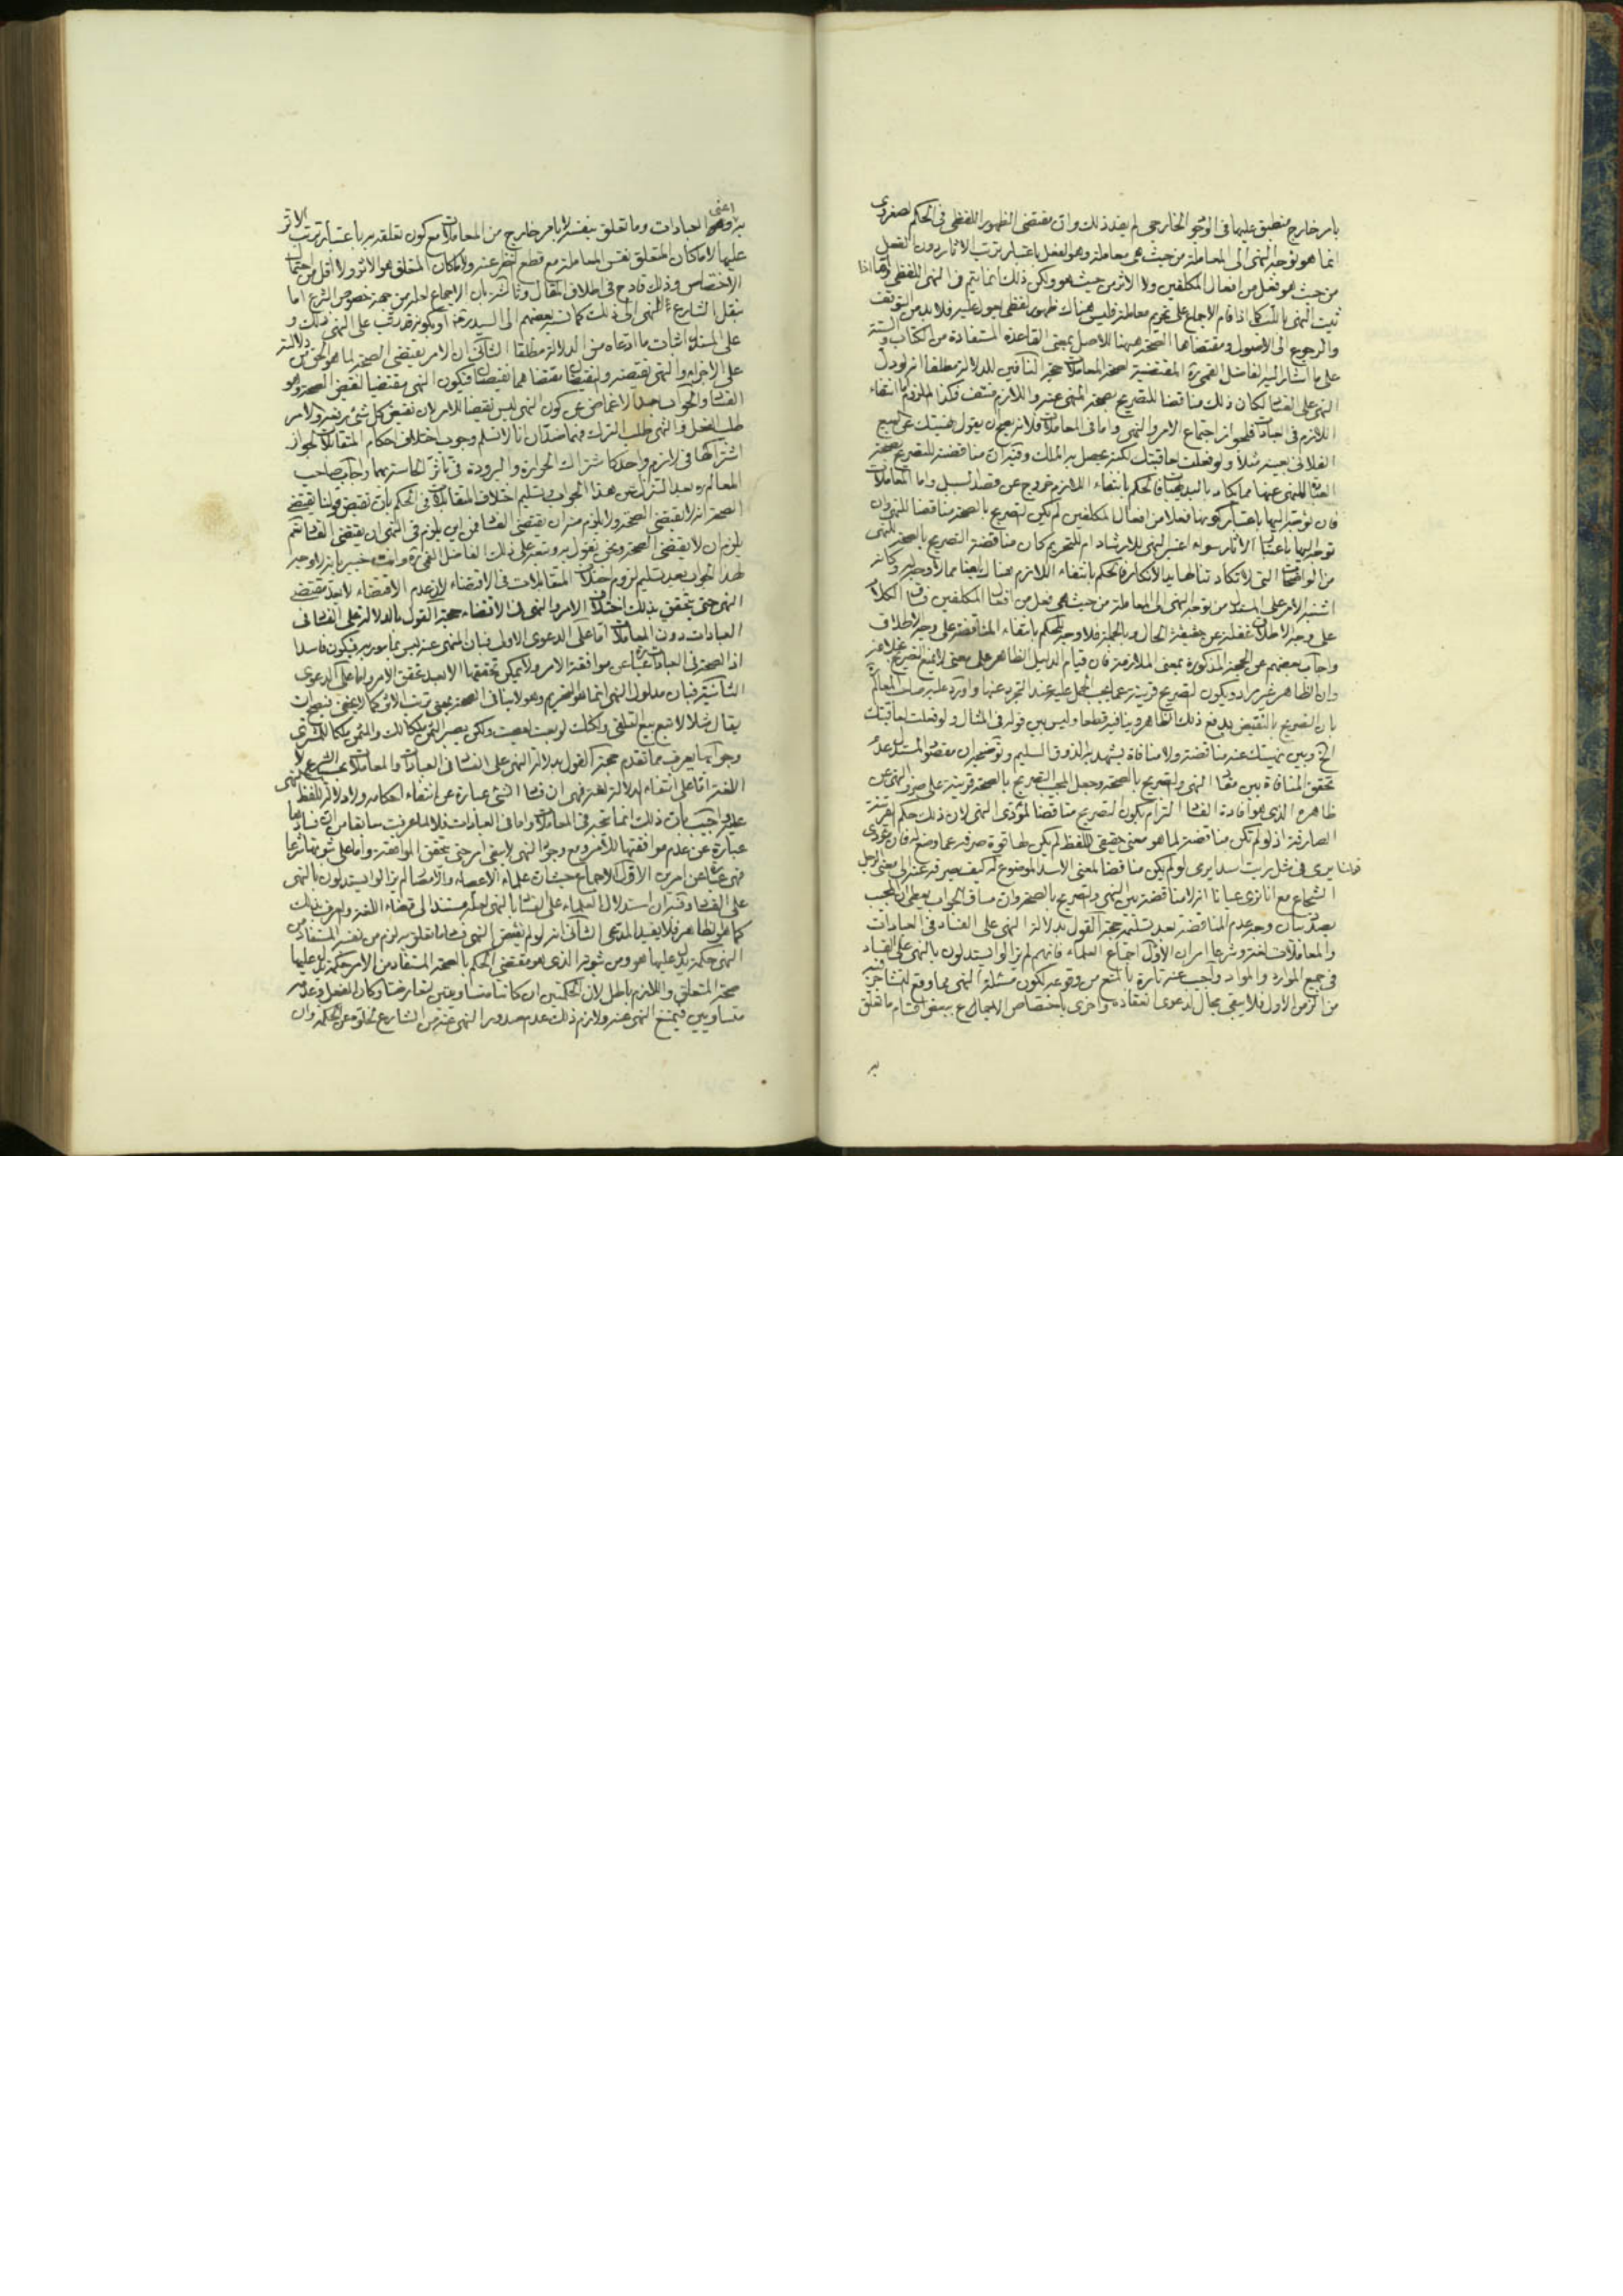 بامر خارج منطبق عليها في الوجود الخارجي لم يفد ذلك وان مقتضى الظهور اللفظي في الحكم لصغروي
انما هو توجه النهي الى المعاملة من حيث هي معاملة وهو الفعل باعتبار ترتب الاثار دون الفعل
من حيث هو فعل من افعال المكلفين ولا الاثر من حيث هو ولكن ذلك انما يتم في النهي اللفظي واما اذا
ثبت النهي باللب كما اذا قام الاجماع على تحريم معاملة فليس هناك ظهور لفظي يعول عليه فلا بد من التوقف
والرجوع الى الاصول ومقتضاها الصحة ههنا للاصل بمعنى القاعدة المستفادة من الكتاب والسنة
على ما اشار اليه الفاضل القمي ره المقتضية لصحة المعاملات حجة النافين للدلالة مطلقا انه لو دل
النهي على الفساد لكان ذلك مناقضا للتصريح بصحة المنهي عنه واللازم منتف وكذا الملزوم اما انتفاء
اللازم في العبادات فلجواز اجتماع الامر والنهي واما في المعاملات فلانه يصح ان يقول نهيتك عن البيع
الفلاني بعينه مثلا ولو فعلت لعاقبتك لكنه يحصل به الملك وفيه ان مناقضته للتصريح بصحة
العبادة المنهي عنها مما يكاد بالبديهيات فالحكم بانتفاء اللازم خروج عن قصد السبيل واما المعاملات
فان توجه اليها باعتبار كونها فعلا من افعال المكلفين لم يكن التصريح بالصحة مناقضا للنهي وان
توجه اليها باعتبار الاثار سواء اعتبر النهي للارشاد ام للتحريم كان مناقضة التصريح بالصحة للنهي
من الواضحات التي لا تكاد تنالها يد الانكار فالحكم بانتفاء اللازم هناك ايضا مما لا وجه له وكانه
اشتبه الامر على المستدل من توجه النهي الى المعاملة من حيث هي فعل من افعال المكلفين فساق الكلام
على وجه الاطلاق غفلة عن حقيقة الحال وبالجملة فلا وجه للحكم بانتفاء المناقضة على وجه الاطلاق
واجاب بعضهم عن الحجة المذكورة بمعنى الملازمة فان قيام الدليل الظاهر على معنى لا يمنع التصريح بخلافه
وان الظاهر غير مراد ويكون التصريح قرينة عما يجب الحمل عليه عند التجرد عنها واورد عليه صاحب المعالم ره
بان التصريح بالنقيض يدفع ذلك الظاهر وينافيه قطعا وليس بين قوله في المثال ولو فعلت لعاقبتك
الخ وبين نهيتك عنه مناقضة ولا منافاة يشهد بذلك الذوق السليم وتوضيحه ان مقصود المستدل عدم
تحقق المنافاة بين مفاد النهي والتصريح بالصحة وجعل المجيب التصريح بالصحة قرينة على صرف النهي عن
ظاهره الذي هو افادة الفساد التزام بكون التصريح مناقضا لمؤدى النهي لان ذلك حكم القرينة
الصارفة اذ لو لم تكن مناقضة لما هو معنى حقيقي للفظ لم يكن لها قوة صرفه عما وضع له فان مؤدى
قولنا يرمي في مثل رايت اسدا يرمي لو لم يكن مناقضا لمعنى الاسد الموضوع له كيف يصرفه عنه الى معنى الرجل
الشجاع مع انا نرى عيانا انه لا مناقضة بين النهي والتصريح بالصحة وان مساق الجواب يعطي ان المجيب
بصدد بيان وجه عدم المناقضة بعد تسليمه حجة القول بدلالة النهي على الفساد في العبادات
والمعاملات لغة وشرعا امران الاول اجماع العلماء فانهم لم يزالوا يستدلون بالنهي على الفساد
في جميع الموارد والمواد واجيب عنه تارة بالمنع من وقوعه لكون مسئلة النهي مما وقع فيه التشاجر
من الزمن الاول فلا يبقى مجال لدعوى انعقاده واخرى باختصاص الاجماع ببعض اقسام ما تعلق
به
به وهو اعني العبادات وما تعلق بنفسه لا بامر خارج من المعاملات مع كون تعلقه به باعتبار ترتب الاثر
عليها لامكان المتعلق بنفس المعاملة مع قطع النظر عنه ولامكان المتعلق هو الاثر ولا اقل من احتمال
الاختصاص وذلك قادح في اطلاق المقال وثالثة بان الاجماع لعله من جهة خصوص الشرع اما
بنقل الشارع النهي الى ذلك كما نسبه بعضهم الى السيد ره او بكونه قد رتب على النهي ذلك و
على المستدل اثبات ما ادعاه من الدلالة مطلقا الثاني ان الامر يقتضي الصحة لما هو الحق من دلالته
على الاجزاء والنهي نقيضه والنقيضان مقتضاهما نقيضان فيكون النهي مقتضيا لنقيض الصحة وهو
الفساد والجواب بعد الاغماض عن كون النهي ليس نقيضا للامر لان نقيض كل شئ رفعه والامر
طلب الفعل والنهي طلب الترك فهما ضدان انا لا نسلم وجوب اختلاف احكام المتقابلات لجواز
اشتراكها في لازم واحد كاشتراك الحرارة والبرودة في تاثر الحاسة بهما واجاب صاحب
المعالم ره بعد التنزل عن هذا الجواب وتسليم اختلاف المتقابلات في الحكم بان نقيض قولنا يقتضي
الصحة انه لا يقتضي الصحة ولا يلزم منه ان يقتضي الفساد فمن اين يلزم في النهي ان يقتضي الفساد نعم
يلزم ان لا يقتضي الصحة ونحن نقول به وتبعه على ذلك الفاضل القمي ره وانت خبير بانه لا وجه
لهذا الجواب بعد تسليم لزوم اختلاف المتقابلات في الاقتضاء لان عدم الاقتضاء لا يعد مقتضى
النهي حتى يتحقق بذلك اختلاف الامر والنهي في الاقتضاء حجة القول بالدلالة على الفساد في
العبادات دون المعاملات اما على الدعوى الاولى فبان المنهي عنه ليس بمامور به فيكون فاسدا
اذ الصحة في العبادات عبارة عن موافقة الامر ولا يمكن تحققها الا بعد تحقق الامر واما على الدعوى
الثانية فبان مدلول النهي انما هو التحريم وهو لا ينافي الصحة بمعنى ترتب الاثر كما لا يخفى فيصح ان
يقال مثلا لا تبع بيع التلقي ولكنك لو بعت لعصيت ولكن يصير الثمن ملكا لك والمثمن ملكا للمشتري
وجوابها يعرف مما تقدم حجة القول بدلالة النهي على الفساد في العبادات والمعاملات بحسب الشرع لا
اللغة اما على انتفاء الدلالة لغة فهي ان فساد الشئ عبارة عن انتفاء احكامه ولا دلالة للفظ النهي
عليه واجيب بان ذلك انما يتجه في المعاملات واما في العبادات فلا لما عرفت سابقا من ان فسادها
عبارة عن عدم موافقتها للامر ومع وجود النهي لا يبقى امر حتى يتحقق الموافقة واما على ثبوتها شرعا
فهي عبارة عن امرين الاول الاجماع حيث ان علماء الاعصار والامصار لم يزالوا يستدلون بالنهي
على الفساد وفيه ان استدلال العلماء على الفساد بالنهي لعله مستند الى قضاء اللغة والعرف بذلك
كما هو الظاهر فلا يفيد المدعى الثاني انه لو لم يقتض النهي فساد ما تعلق به لزم من نفيه المستفاد من
النهي حكمة يدل عليها هو ومن ثبوته الذي هو مقتضى الحكم بالصحة المستفاد من الامر حكمة يدل عليها
صحة المتعلق واللازم باطل لان الحكمتين ان كانتا متساويتين تعارضتا وكان الفعل وعدمه
متساويين فيمتنع النهي عنه ولازم ذلك عدم صدور النهي عنه من الشارع لخلوه عن الحكمة وان